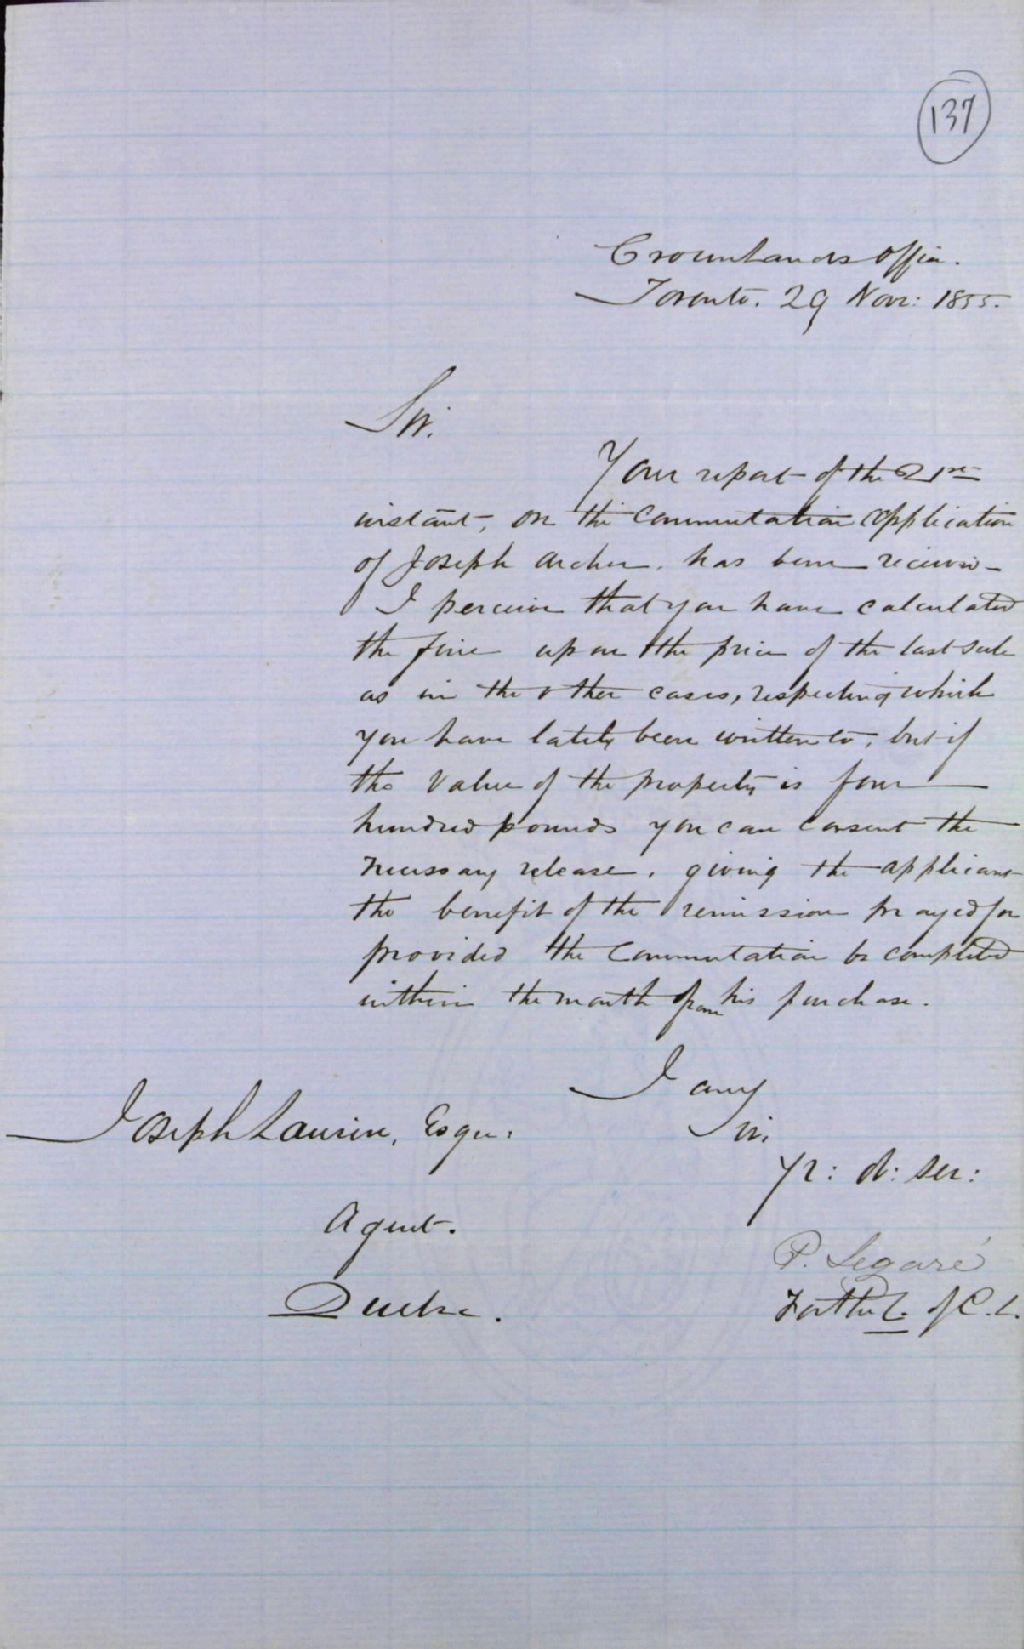 137
Crown Lands Office.
Toronto. 29 Novr: 1855.
Sir.
Your report of the 21st
instant, on the commutation application
of Joseph Archer. has been received-
I perceive that you have calculated
the fine upon the price of the last sale
as in the other cases, respecting which
you have lately been written to, but if
the value of the property is four
hundred pounds you can consent the
necessary release, giving the applicant
the benefit of the remission prayed for
provided the Commutation be completed
within the month from his purchase.
I am
Sir,
Joseph Laurin, Esqre.
Yr: ob: ser:
Agent.
P. Legaré
Quebec.
For the C. of C. L.